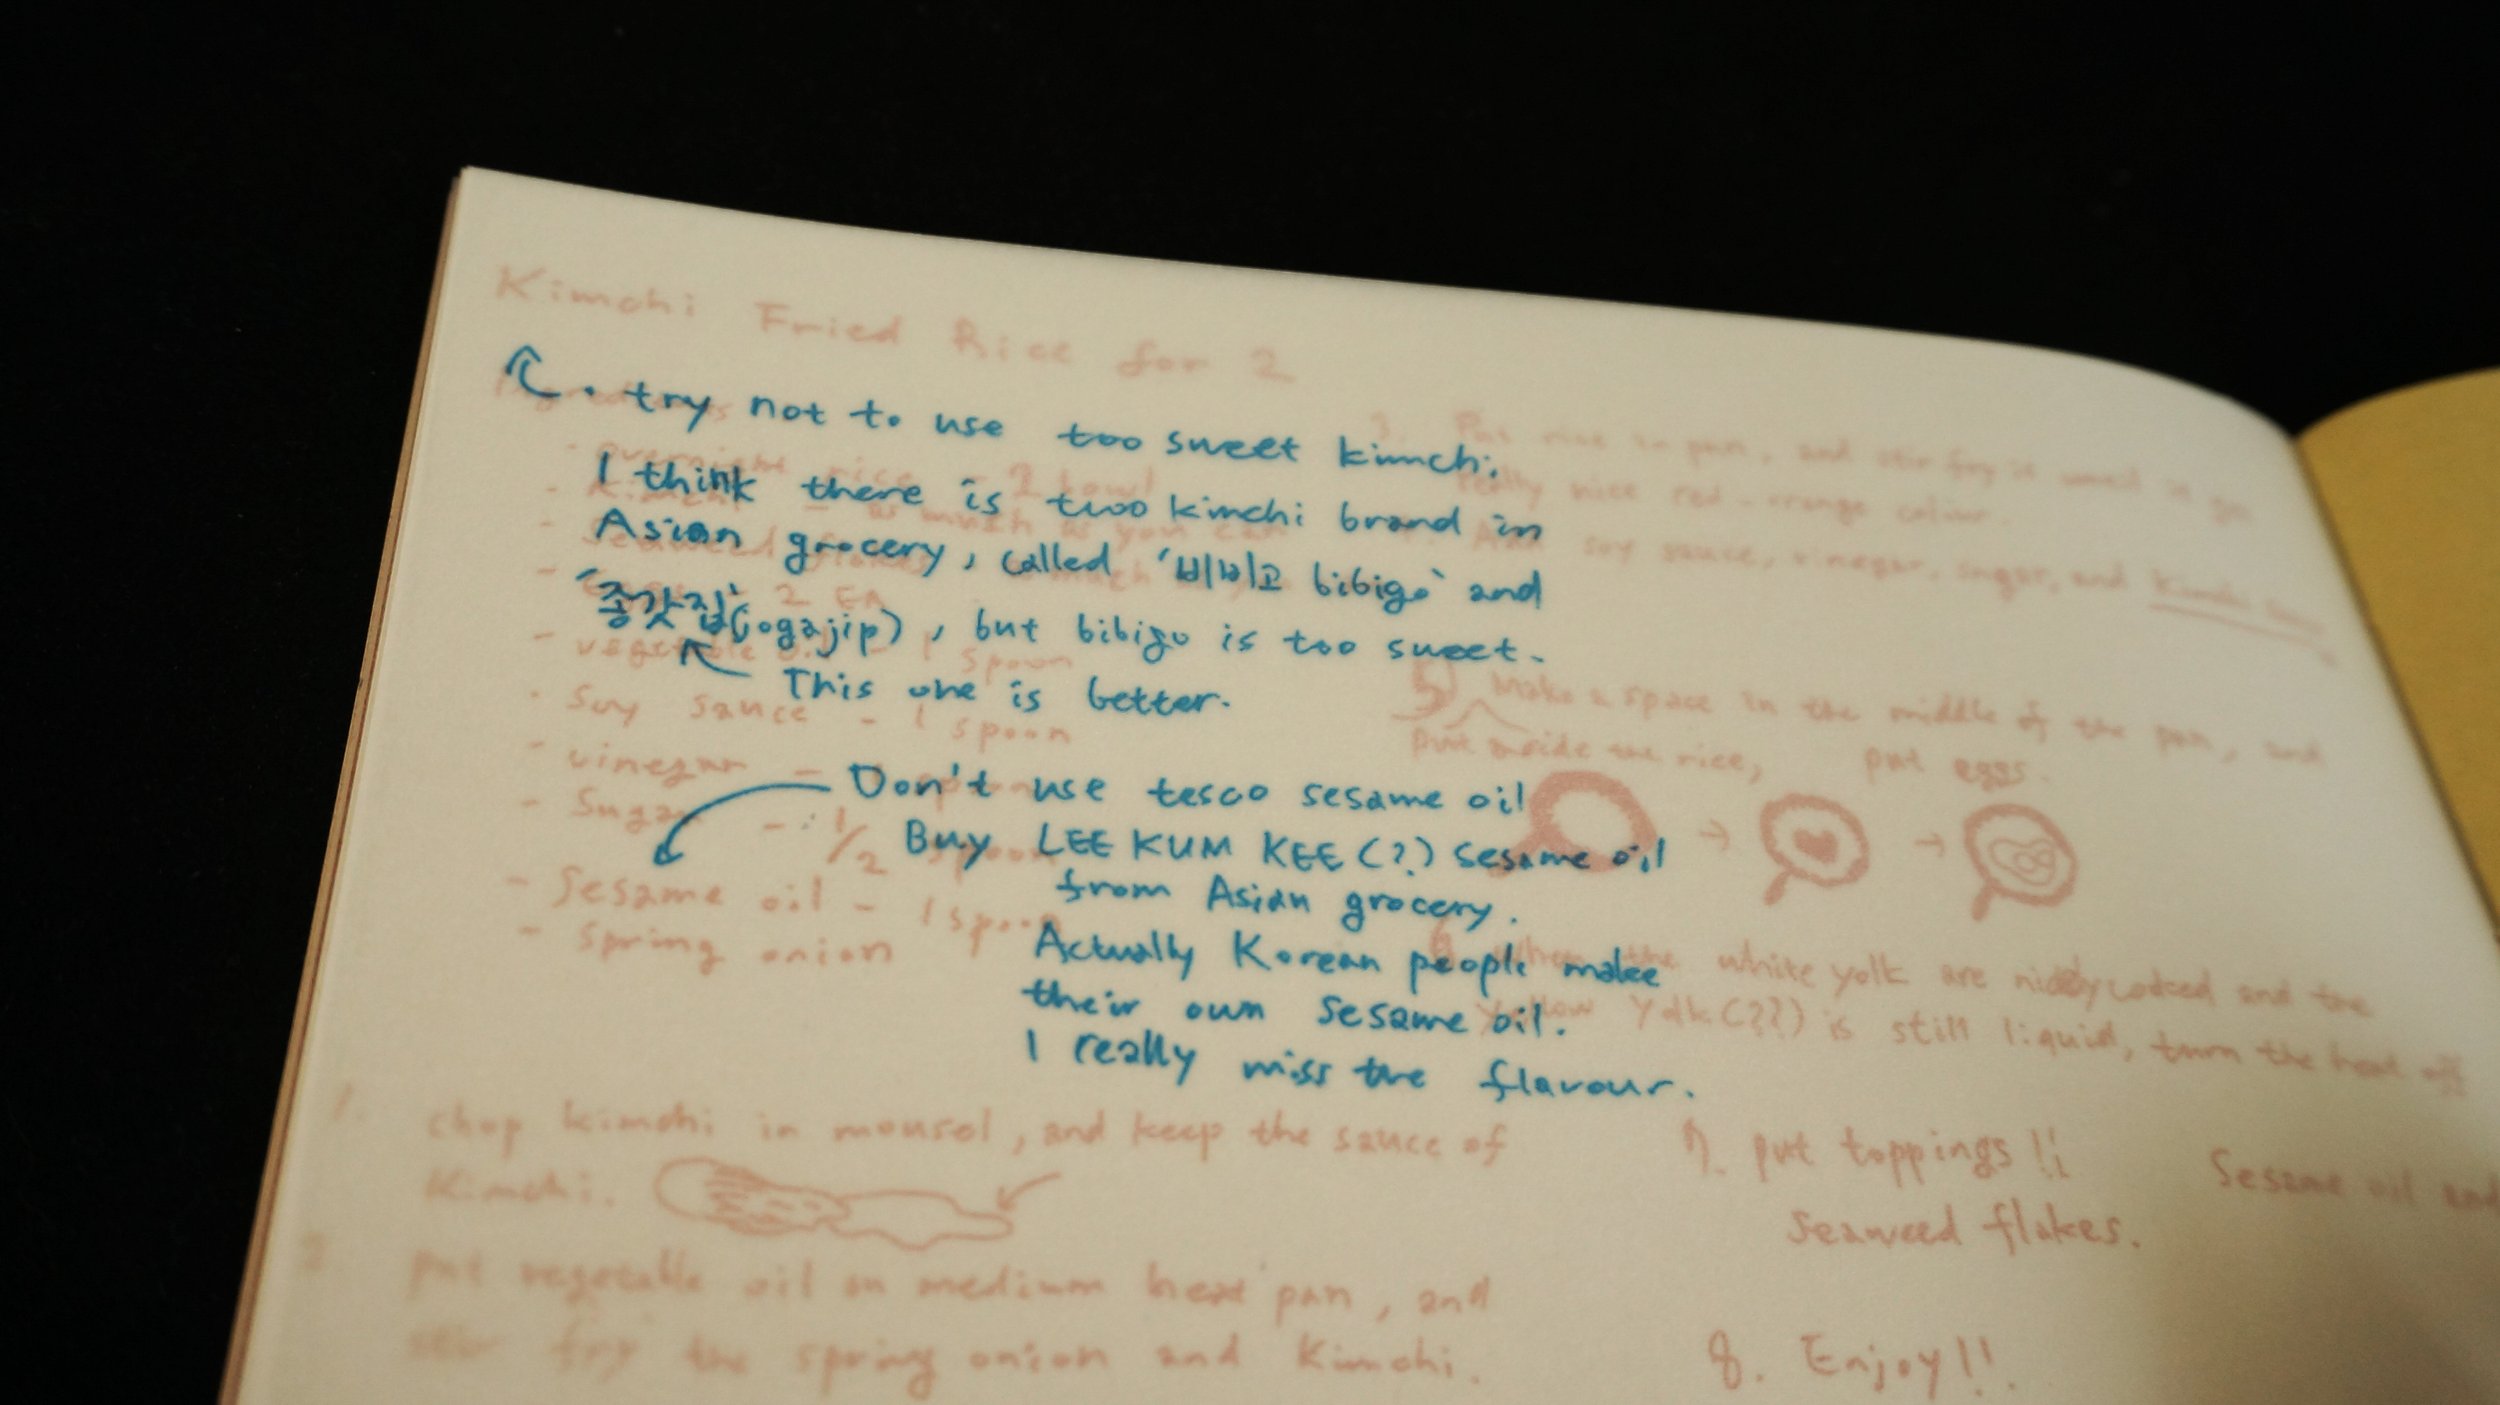 Kimchi Fried Rice for 2
. try not to use too sweet kimchi.
I think there is two kimchi brand in
Asian grocery, called '비비고 bibigo' and
'종갓집'(jogajip), but bibigo is too sweet.
This one is better.
Don't use tesco sesame oil
Buy LEE KUM KEE (?) sesame oil
from Asian grocery.
Actually Korean people make
their own sesame oil.
I really miss the flavour.
- overnight rice - 2 bowl
- Kimchi - as much as you can
- seaweed flakes
- 2 EA
- vegetable oil - 1 spoon
- Soy sauce - 1 spoon
- vinegar - spoon
- Sugar - 1/2 spoon
- Sesame oil - 1 spoon
- spring onion
1. chop kimchi in mousel, and keep the sauce of
Kimchi.
2 put vegetable oil on medium heat pan, and
stir fry the spring onion and Kimchi.
3. Put rice in pan, and stir fry it until it
really nice red-orange colour.
Add soy sauce, vinegar, sugar, and Kimchi
5) Make a space in the middle of the pan, and
put aside the rice, put eggs.
6. When the white yolk are nicely cooked and the
Yellow Yolk(??) is still liquid, turn the heat off
7. put toppings!! Sesame oil and
seaweed flakes.
8. Enjoy!!